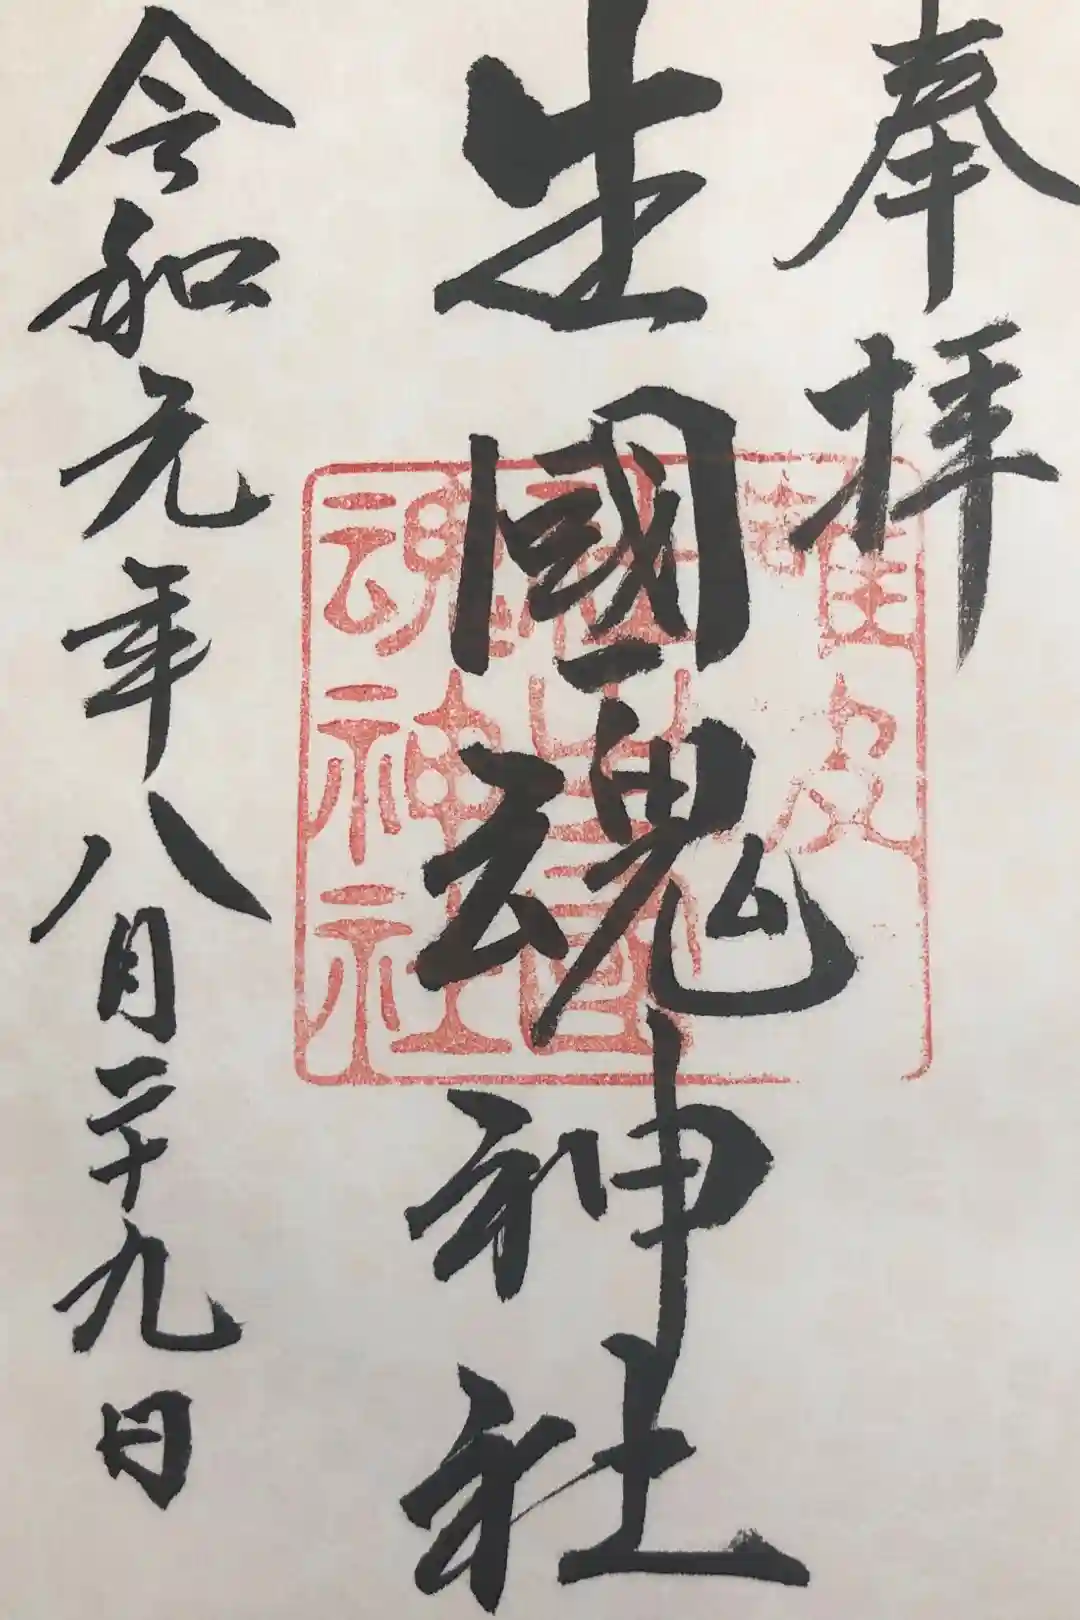 奉拝
生國魂神社
令和元年八月二十九日
難波
生國
魂神社